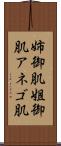 姉御肌姐御
肌アネゴ肌